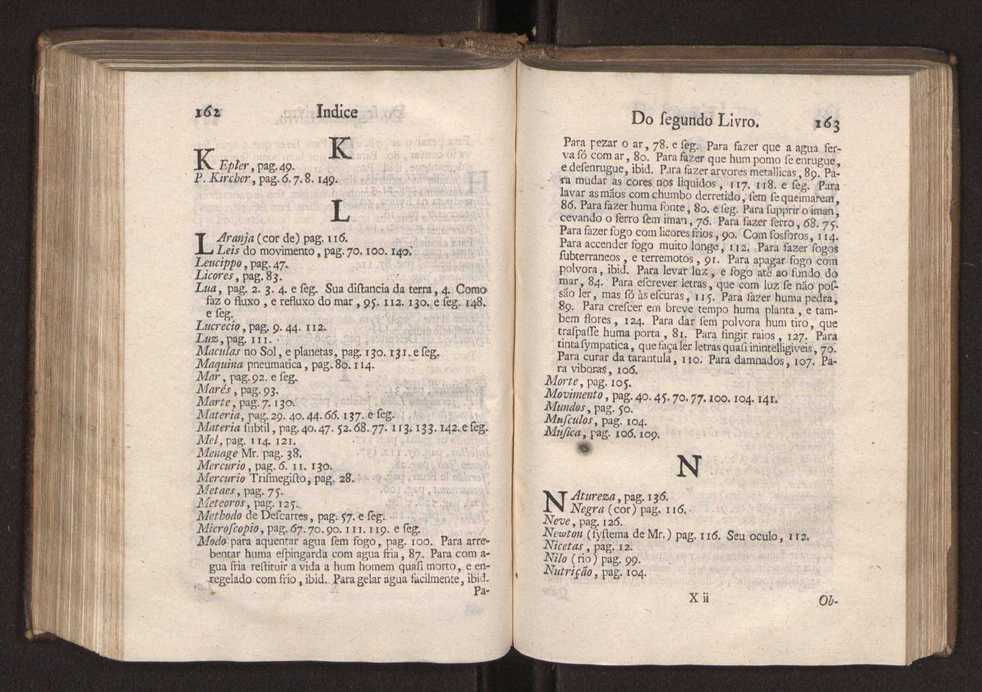 162 Indice
K
KEpler, pag. 49.
P. Kircher, pag. 6. 7. 8. 149.
L
LAranja (cor de) pag. 116.
Leis do movimento, pag. 70. 100. 140.
Leucippo, pag. 47.
Licores, pag. 83.
Lua, pag. 2. 3. 4. e ſeg. Sua diſtancia da terra, 4. Como
faz o fluxo, e refluxo do mar, 95. 112. 130. e ſeg. 148.
e ſeg.
Lucrecio, pag. 9. 44. 112.
Luz, pag. 111.
Maculas no Sol, e planetas, pag. 130. 131. e ſeg.
Maquina pneumatica, pag. 80. 114.
Mar, pag. 92. e ſeg.
Marés, pag. 93.
Marte, pag. 7. 130.
Materia, pag. 29. 40. 44. 66. 137. e ſeg.
Materia ſubtil, pag. 40. 47. 52. 68. 77. 113. 133. 142. e ſeg.
Mel, pag. 114. 121.
Menage Mr. pag. 38.
Mercurio, pag. 6. 11. 130.
Mercurio Triſmegiſto, pag. 28.
Metaes, pag. 75.
Meteoros, pag. 125.
Methodo de Deſcartes, pag. 57. e ſeg.
Microſcopio, pag. 67. 70. 90. 111. 119. e ſeg.
Modo para aquentar agua ſem fogo, pag. 100. Para arre-
bentar huma eſpingarda com agua fria, 87. Para com a-
gua fria reſtituir a vida a hum homem quaſi morto, e en-
regelado com frio, ibid. Para gelar agua facilmente, ibid.
Pa-
Do ſegundo Livro. 163
Para pezar o ar, 78. e ſeg. Para fazer que a agua fer-
va ſó com ar, 80. Para fazer que hum pomo ſe enrugue,
e deſenrugue, ibid. Para fazer arvores metallicas, 89. Pa-
ra mudar as cores nos liquidos, 117. 118. e ſeg. Para
lavar as mãos com chumbo derretido, ſem ſe queimarem,
86. Para fazer huma fonte, 80. e ſeg. Para ſupprir o iman,
cevando o ferro ſem iman, 76. Para fazer ferro, 68. 75.
Para fazer fogo com licores frios, 90. Com fosforos, 114.
Para accender fogo muito longe, 112. Para fazer fogos
ſubterraneos, e terremotos, 91. Para apagar fogo com
polvora, ibid. Para levar luz, e fogo até ao fundo do
mar, 84. Para eſcrever letras, que com luz ſe não poſ-
são ler, mas ſó às eſcuras, 115. Para fazer huma pedra,
89. Para creſcer em breve tempo huma planta, e tam-
bem flores, 124. Para dar ſem polvora hum tiro, que
traſpaſſe huma porta, 81. Para fingir raios, 127. Para
tinta ſympatica, que faça ler letras quaſi inintelligiveis, 70.
Para curar da tarantula, 110. Para damnados, 107. Pa-
ra viboras, 106.
Morte, pag. 105.
Movimento, pag. 40. 45. 70. 77. 100. 104. 141.
Mundos, pag. 50.
Muſculos, pag. 104.
Muſica, pag. 106. 109.
N
NAtureza, pag. 136.
Negra (cor) pag. 116.
Neve, pag. 126.
Newton (ſyſtema de Mr.) pag. 116. Seu oculo, 112.
Nicetas, pag. 12.
Nilo (rio) pag. 99.
Nutrição, pag. 104.
X ii Ob-